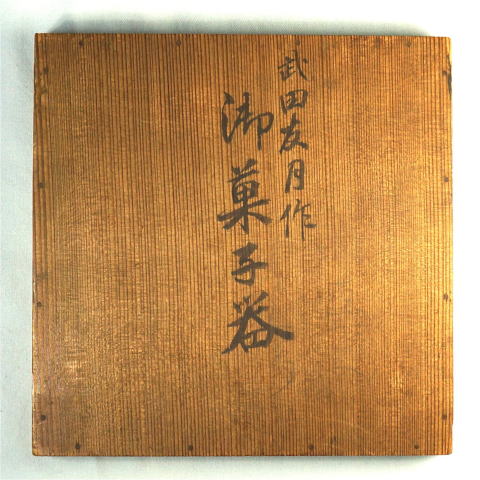 武田友月作
御菓子器